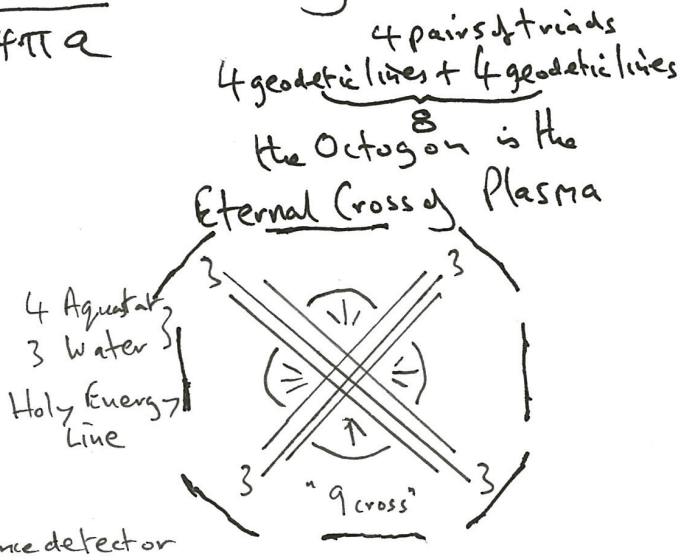 4πa
4 pairs of triads
4 geodetic lines + 4 geodetic lines
8
the Octogon is the
Eternal Cross of Plasma
3
3
4 Aquastat
3 Water
Holy Energy
Line
3
"9 cross"
3
detector